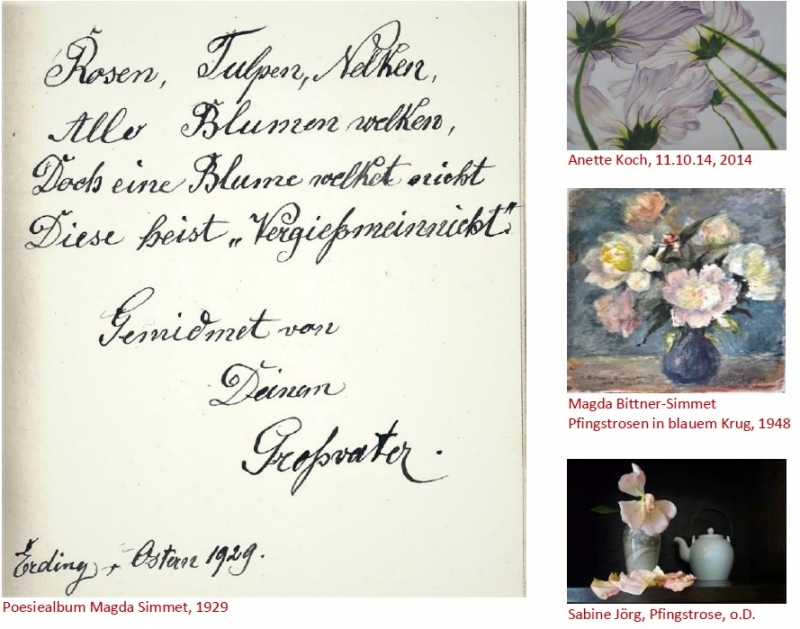 Rosen, Tulpen, Nelken,
Alle Blumen welken,
Doch eine Blume welket nicht
Diese heist „Vergießmeinnicht".
Gewidmet von
Deinem
Großvater.
Erding, Ostern 1929.
Poesiealbum Magda Simmet, 1929
Anette Koch, 11.10.14, 2014
Magda Bittner-Simmet
Pfingstrosen in blauem Krug, 1948
Sabine Jörg, Pfingstrose, o.D.